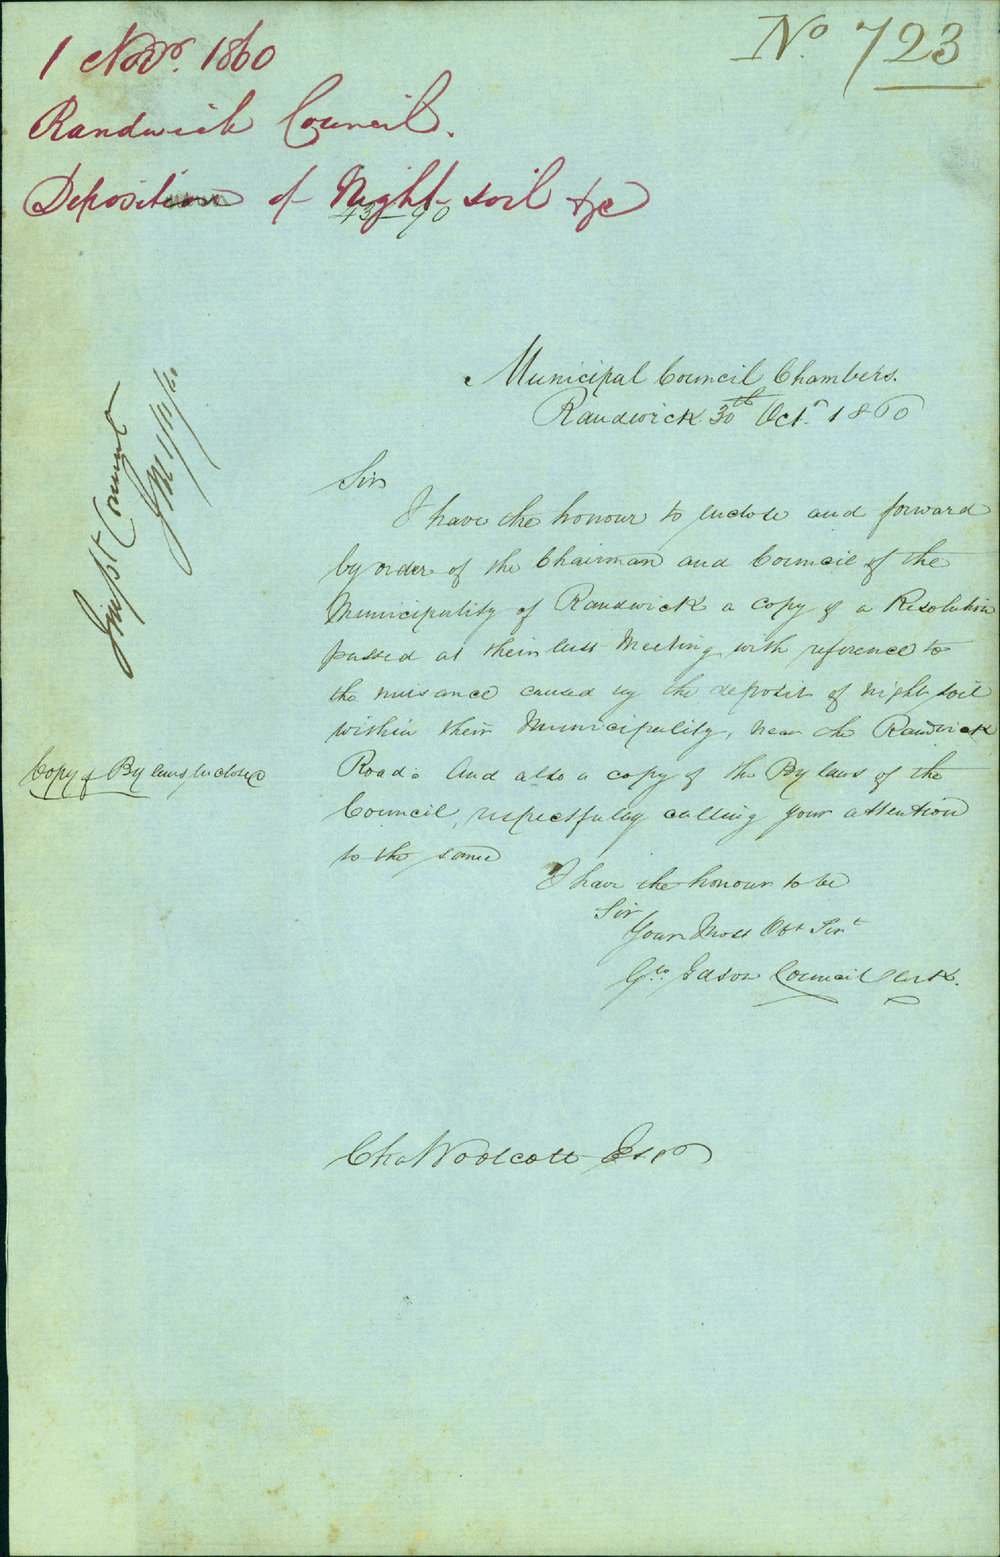 No. 723
1 Novr. 1860
Randwick Council.
Deposit of Night-soil &c
43-90
Municipal Council Chambers.
Randwick 30th Octr. 1860
Sir
I have the honour to enclose and forward
by order of the Chairman and Council of the
Municipality of Randwick a copy of a Resolution
passed at their last Meeting with reference to
the nuisance caused by the deposit of night soil
within their Municipality, near the Randwick
Road. And also a copy of the By laws of the
Council, respectfully calling your attention
to the same
I have the honour to be
Sir
Your Most Obt Sert
Geo. Edson Council Clerk.
Copy of By laws enclosed
Impst Committ
JM 1/11/60
Chas Woolcott Esqr